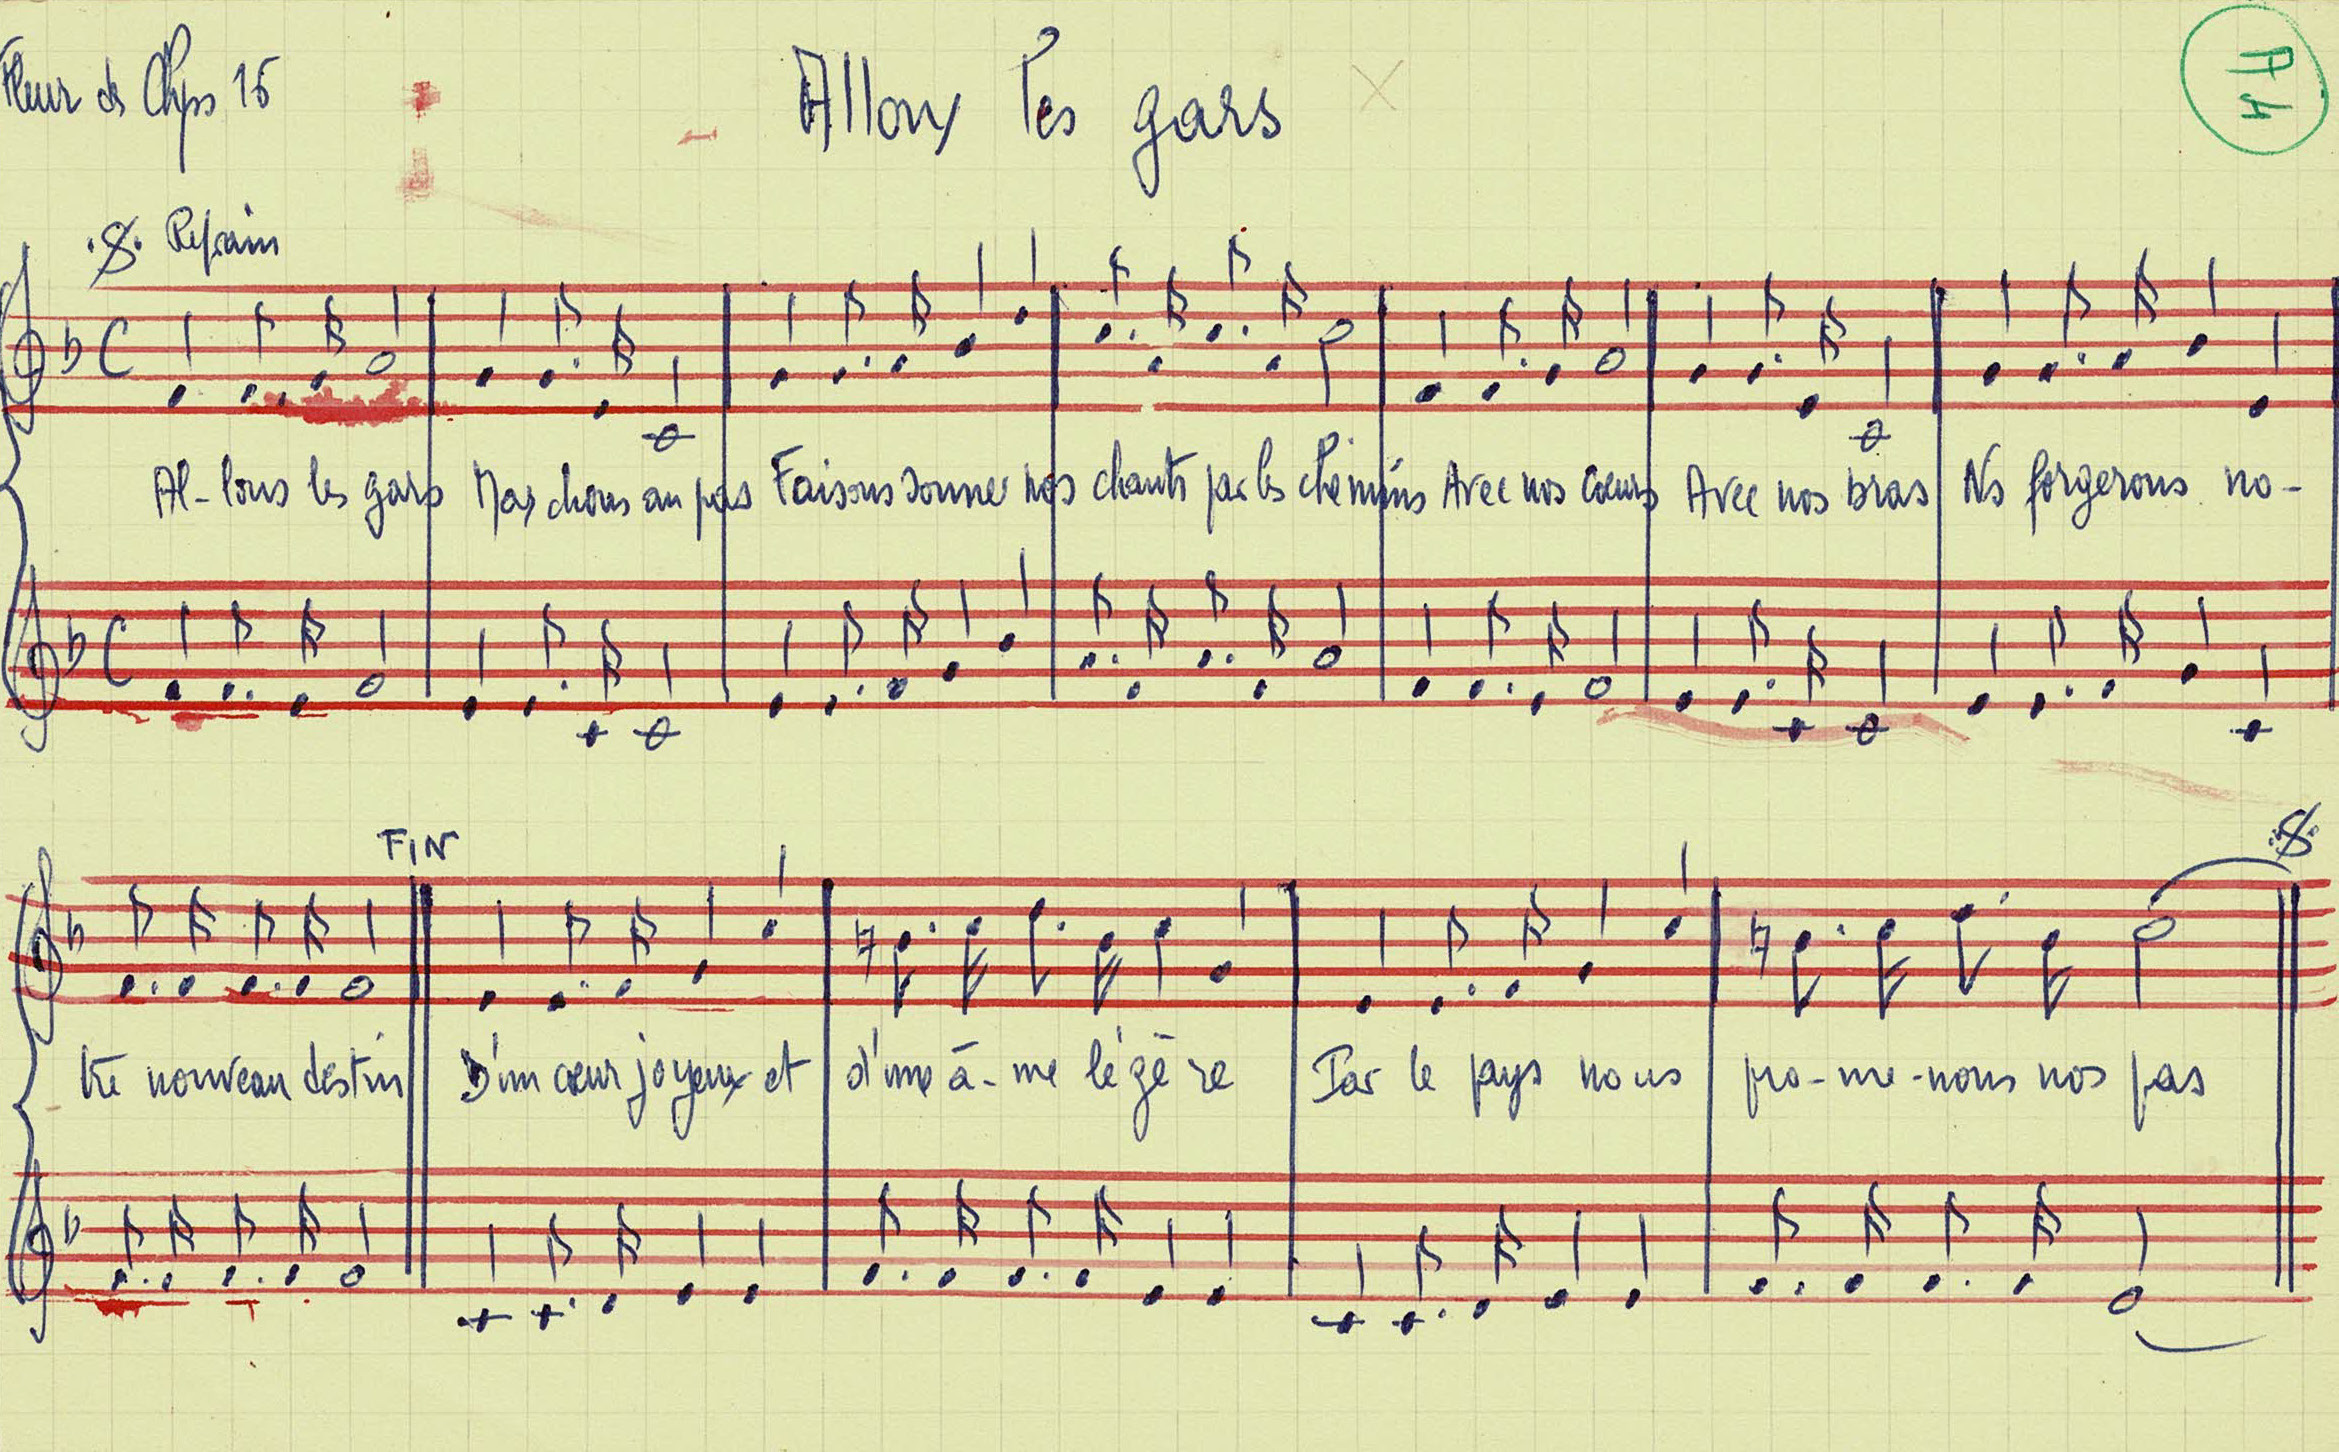 Fleur de Chps 15
Allons les gars
A4
Refrain
Al-lons les gars Marchons au pas Faisons sonner nos chants par les chemins Avec nos cœurs Avec nos bras Ns forgerons no-
FIN
tre nouveau destin D'un cœur joyeux et d'une â-me légère Par le pays nous pro-me-nons nos pas